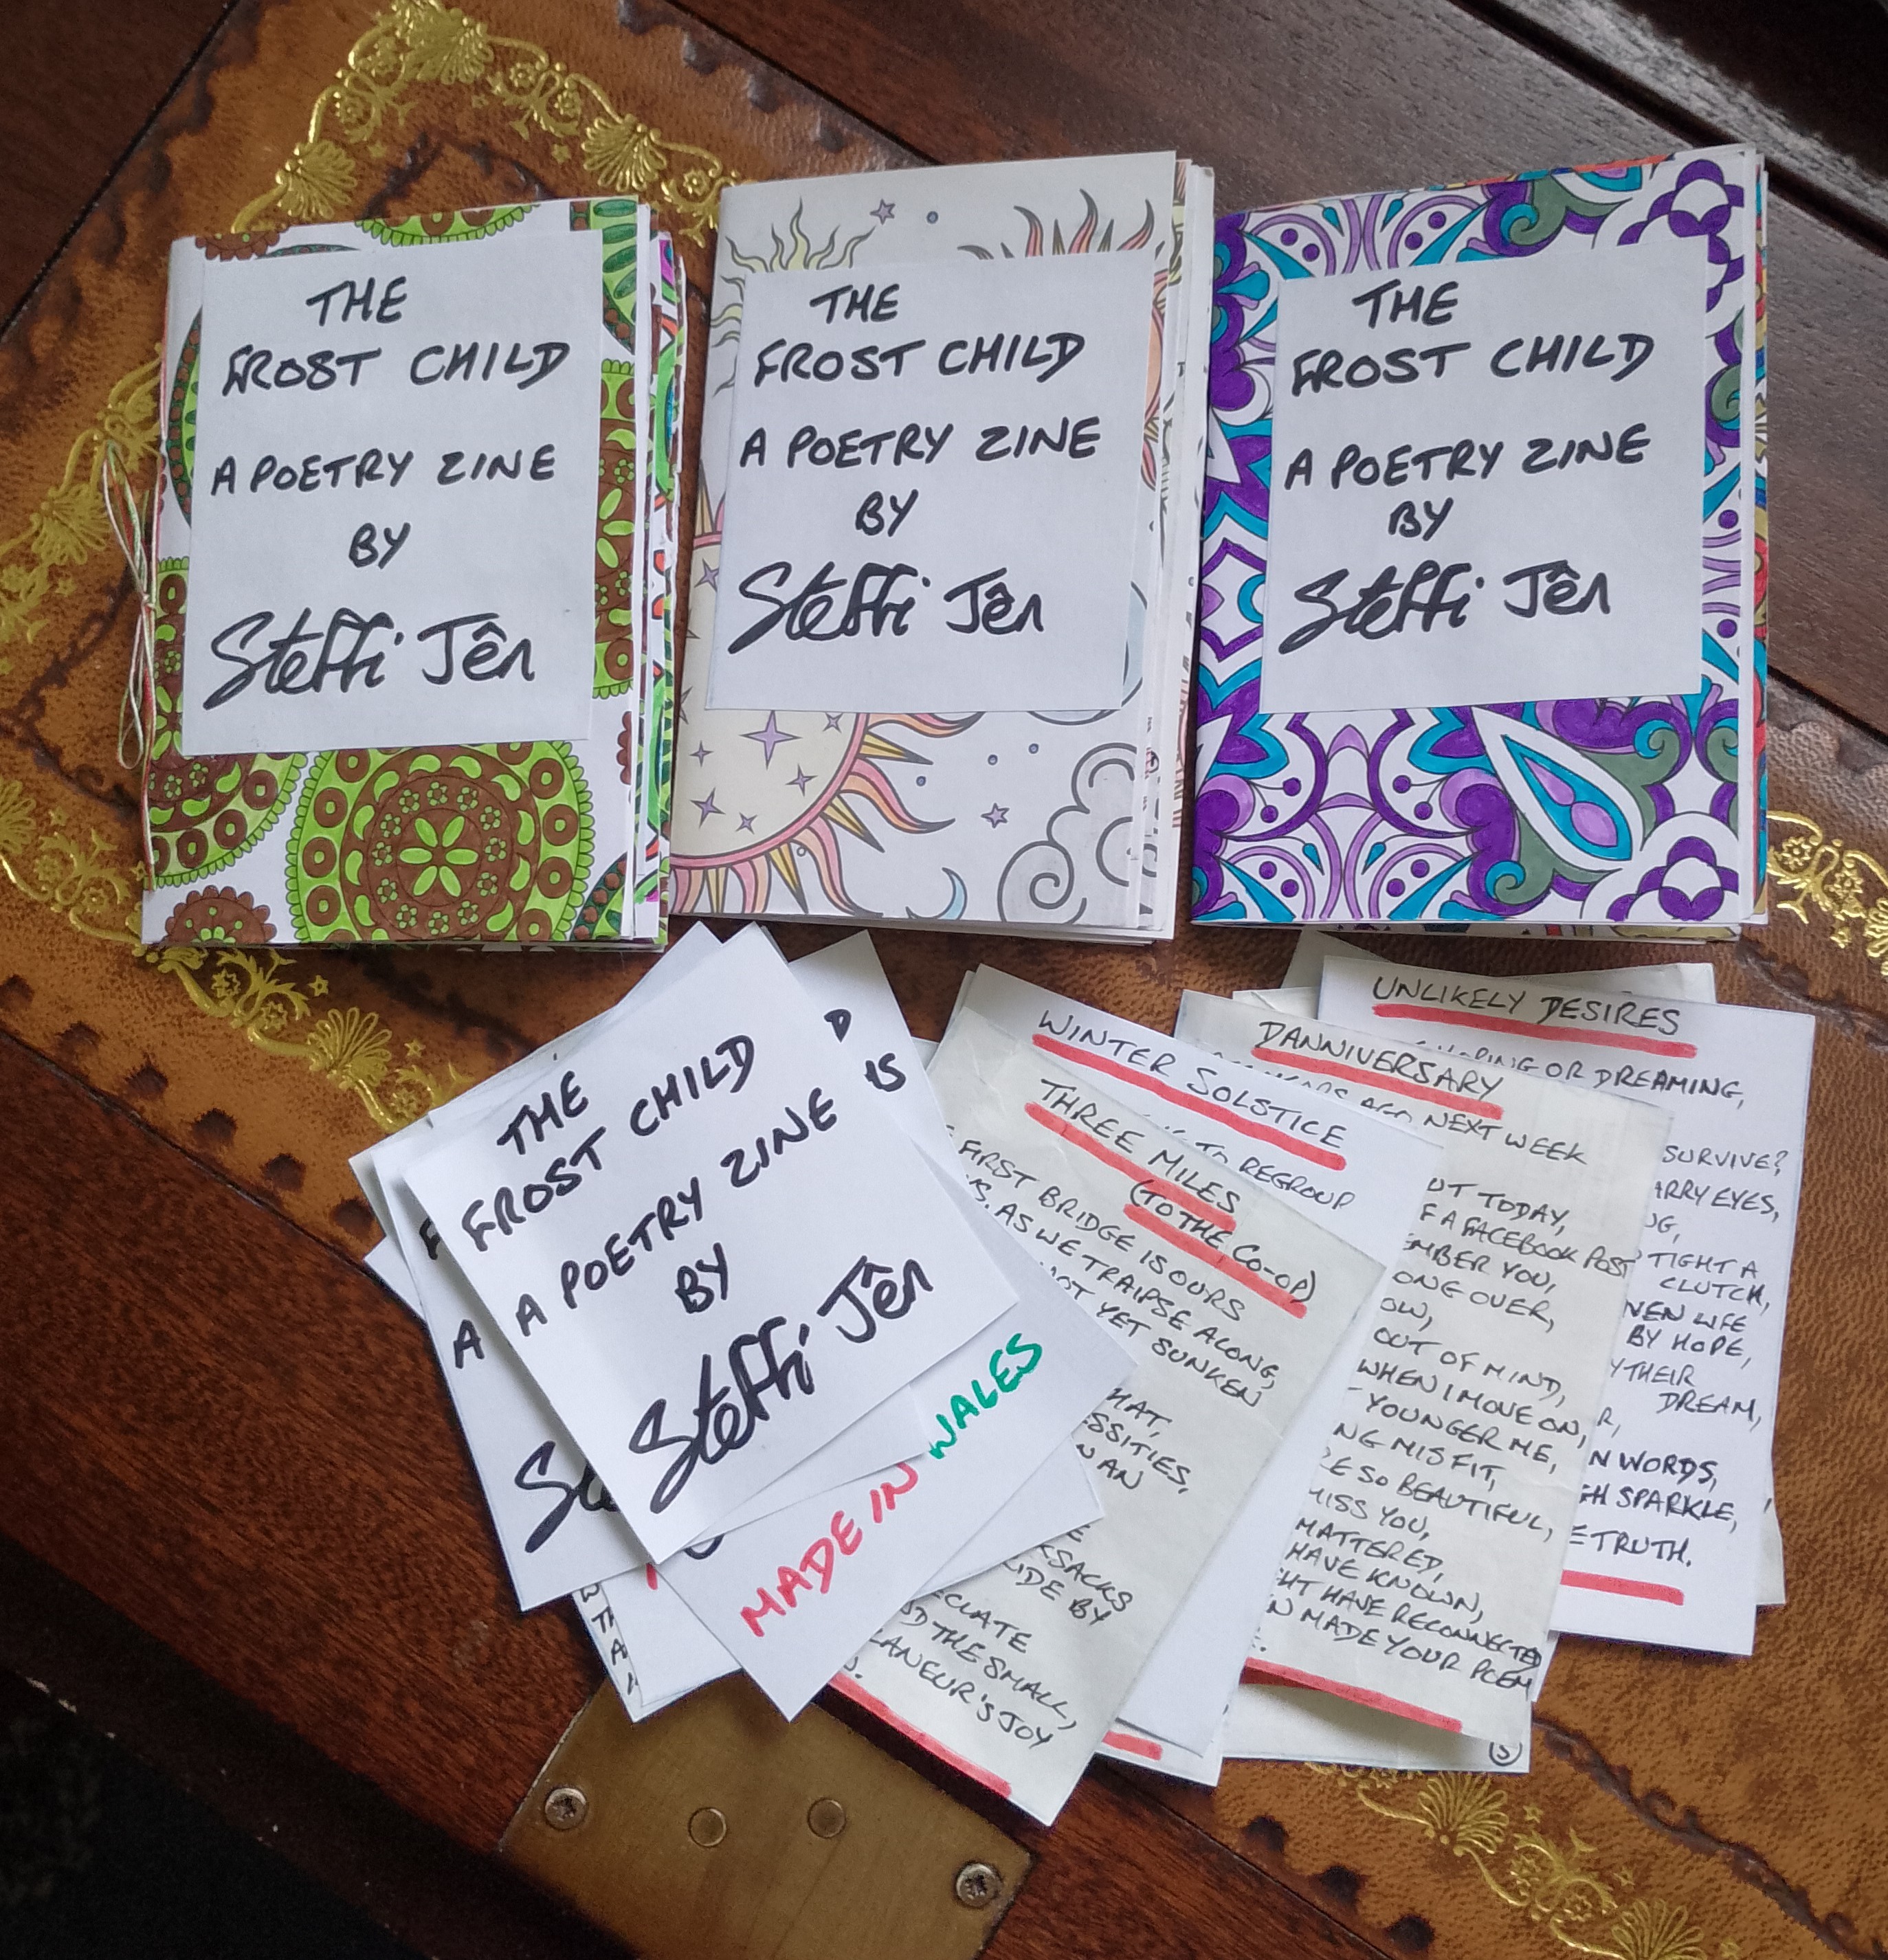 THE
FROST CHILD
A POETRY ZINE
BY
Steffi Jên
THE
FROST CHILD
A POETRY ZINE
BY
Steffi Jên
THE
FROST CHILD
A POETRY ZINE
BY
Steffi Jên
THE
FROST CHILD
A POETRY ZINE
BY
Steffi Jên
D
IS
A
MADE IN WALES
THREE MILES
(TO THE CO-OP)
FIRST BRIDGE IS OURS
AS WE TRAIPSE ALONG,
NOT YET SUNKEN
HAT,
SSITIES,
N AN
E
KSACKS
IDE BY
ECLATE
ND THE SMALL,
LANEUR'S JOY
WINTER SOLSTICE
TO REGROUP
DANNIVERSARY
AGO NEXT WEEK
UT TODAY,
F A FACEBOOK POST
EMBER YOU,
ONG OVER,
OW,
OUT OF MIND,
WHEN I MOVE ON,
YOUNGER ME,
NG MISFIT,
RE SO BEAUTIFUL,
MISS YOU,
MATTERED,
HAVE KNOWN,
GHT HAVE RECONNECTED
N MADE YOUR POEM
5
UNLIKELY DESIRES
OR DREAMING,
SURVIVE?
ARRY EYES,
NG,
TIGHT A
CLUTCH,
VEN LIFE
BY HOPE,
Y THEIR
DREAM,
R,
N WORDS,
GH SPARKLE,
E TRUTH.